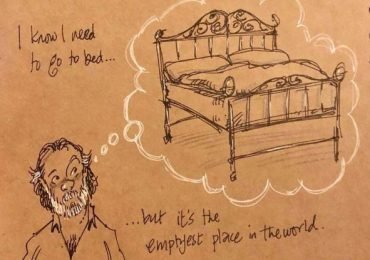 I know I need
to go to bed...
...but it's the
emptyest place in the world.